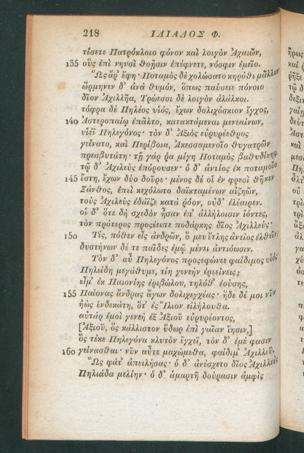 218 ΙΛΙΑΔΟΣ Φ.
τίσετε Πατρόκλοιο φόνον καὶ λοιγὸν Ἀχαιῶν,
135 οὓς ἐπὶ νηυσὶ θοῇσιν ἐπέφνετε, νόσφιν ἐμεῖο.
Ὣς ἄρ' ἔφη· Ποταμὸς δὲ χολώσατο κηρόθι μᾶλλον
ὥρμηνεν δ' ἀνὰ θυμόν, ὅπως παύσειε πόνοιο
δῖον Ἀχιλλῆα, Τρώεσσι δὲ λοιγὸν ἀλάλκοι.
τόφρα δὲ Πηλέος υἱός, ἔχων δολιχόσκιον ἔγχος,
140 Ἀστεροπαίῳ ἐπᾶλτο, κατακτάμεναι μενεαίνων,
υἱέϊ Πηλεγόνος· τὸν δ' Ἀξιὸς εὐρυρέεθρος
γείνατο, καὶ Περίβοια, Ἀκεσσαμενοῖο θυγατρῶν
πρεσβυτάτη· τῇ γάρ ῥα μίγη Ποταμὸς βαθυδίνης
τῷ δ' Ἀχιλεὺς ἐπόρουσεν· ὁ δ' ἀντίος ἐκ ποταμοῖο
145 ἔστη, ἔχων δύο δοῦρε· μένος δέ οἱ ἐν φρεσὶ θῆκεν
Ξάνθος, ἐπεὶ κεχόλωτο δαϊκταμένων αἰζηῶν,
τοὺς Ἀχιλεὺς ἐδάϊζε κατὰ ῥόον, οὐδ' ἐλέαιρεν.
οἱ δ' ὅτε δὴ σχεδὸν ἦσαν ἐπ' ἀλλήλοισιν ἰόντες,
τὸν πρότερος προσέειπε ποδάρκης δῖος Ἀχιλλεύς·
150 Τίς, πόθεν εἰς ἀνδρῶν, ὅ μευ ἔτλης ἀντίος ἐλθεῖν;
δυστήνων δέ τε παῖδες ἐμῷ μένει ἀντιόωσιν.
Τὸν δ' αὖ Πηλεγόνος προσεφώνεε φαίδιμος υἱός·
Πηλείδη μεγάθυμε, τίη γενεὴν ἐρεείνεις;
εἴμ' ἐκ Παιονίης ἐριβώλου, τηλόθ' ἐούσης,
155 Παίονας ἄνδρας ἄγων δολιχεγχέας· ἥδε δέ μοι νῦν
ἠὼς ἑνδεκάτη, ὅτ' ἐς Ἴλιον εἰλήλουθα.
αὐτὰρ ἐμοὶ γενεὴ ἐξ Ἀξιοῦ εὐρυρέοντος,
[Ἀξιοῦ, ὃς κάλλιστον ὕδωρ ἐπὶ γαῖαν ἵησιν,]
ὃς τέκε Πηλεγόνα κλυτὸν ἔγχεϊ, τὸν δ' ἐμέ φασιν
160 γείνασθαι· νῦν αὖτε μαχώμεθα, φαίδιμ' Ἀχιλλεῦ.
Ὣς φάτ' ἀπειλήσας· ὁ δ' ἀνέσχετο δῖος Ἀχιλλεὺς
Πηλιάδα μελίην· ὁ δ' ἁμαρτῆ δούρασιν ἀμφὶς